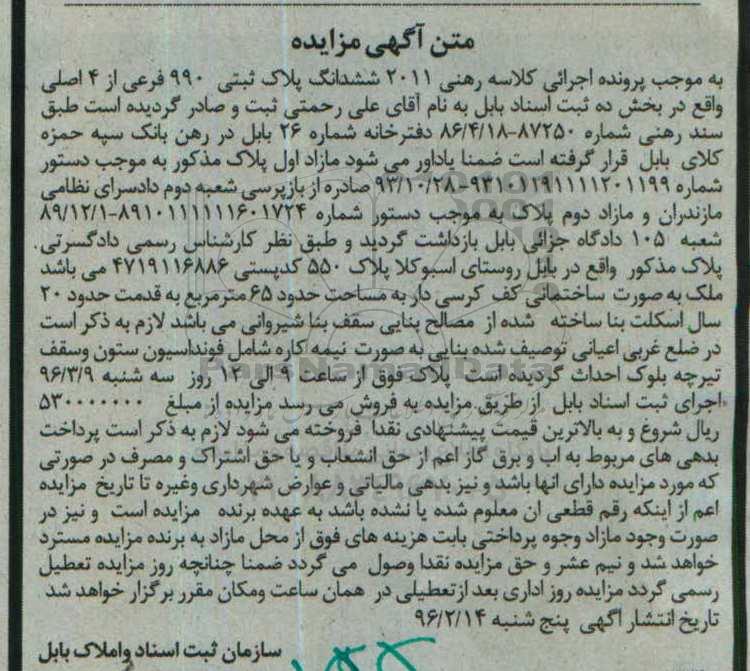 متن آگهی مزایده
به موجب پرونده اجرائی کلاسه رهنی ۲۰۱۱ ششدانگ پلاک ثبتی ۹۹۰ فرعی از ۴ اصلی
واقع در بخش ده ثبت اسناد بابل به نام آقای علی رحمتی ثبت و صادر گردیده است طبق
سند رهنی شماره ۸۷۲۵۰-۸۶/۴/۱۸ دفترخانه شماره ۲۶ بابل در رهن بانک سپه حمزه
کلای بابل قرار گرفته است ضمنا یاداور می شود مازاد اول پلاک مذکور به موجب دستور
شماره ۹۳۱۰۱۱۹۱۱۱۱۱۲۰۱۱۹۹-۹۳/۱۰/۲۸ صادره از بازپرسی شعبه دوم دادسرای نظامی
مازندران و مازاد دوم پلاک به موجب دستور شماره ۸۹۱۰۱۱۱۱۱۱۶۰۱۷۲۴-۸۹/۱۲/۱
شعبه ۱۰۵ دادگاه جزائی بابل بازداشت گردید و طبق نظر کارشناس رسمی دادگستری
پلاک مذکور واقع در بابل روستای اسبوکلا پلاک ۵۵۰ کدپستی ۴۷۱۹۱۱۶۸۸۶ می باشد
ملک به صورت ساختمانی کف کرسی دار به مساحت حدود ۶۵ مترمربع به قدمت حدود ۲۰
سال اسکلت بنا ساخته شده از مصالح بنایی سقف بنا شیروانی می باشد لازم به ذکر است
در ضلع غربی اعیانی توصیف شده بنایی به صورت نیمه کاره شامل فونداسیون ستون وسقف
تیرچه بلوک احداث گردیده است پلاک فوق از ساعت ۹ الی ۱۲ روز سه شنبه ۹۶/۳/۹
اجرای ثبت اسناد بابل از طریق مزایده به فروش می رسد مزایده از مبلغ ۵۳۰۰۰۰۰۰۰
ریال شروع و به بالاترین قیمت پیشنهادی نقدا فروخته می شود لازم به ذکر است پرداخت
بدهی های مربوط به اب و برق گاز اعم از حق انشعاب و یا حق اشتراک و مصرف در صورتی
که مورد مزایده دارای انها باشد و نیز بدهی مالیاتی و عوارض شهرداری وغیره تا تاریخ مزایده
اعم از اینکه رقم قطعی ان معلوم شده یا نشده باشد به عهده برنده مزایده است و نیز در
صورت وجود مازاد وجوه پرداختی بابت هزینه های فوق از محل مازاد به برنده مزایده مسترد
خواهد شد و نیم عشر و حق مزایده نقدا وصول می گردد ضمنا چنانچه روز مزایده تعطیل
رسمی گردد مزایده روز اداری بعد ازتعطیلی در همان ساعت ومکان مقرر برگزار خواهد شد
تاریخ انتشار اگهی پنج شنبه ۹۶/۲/۱۴
سازمان ثبت اسناد واملاک بابل